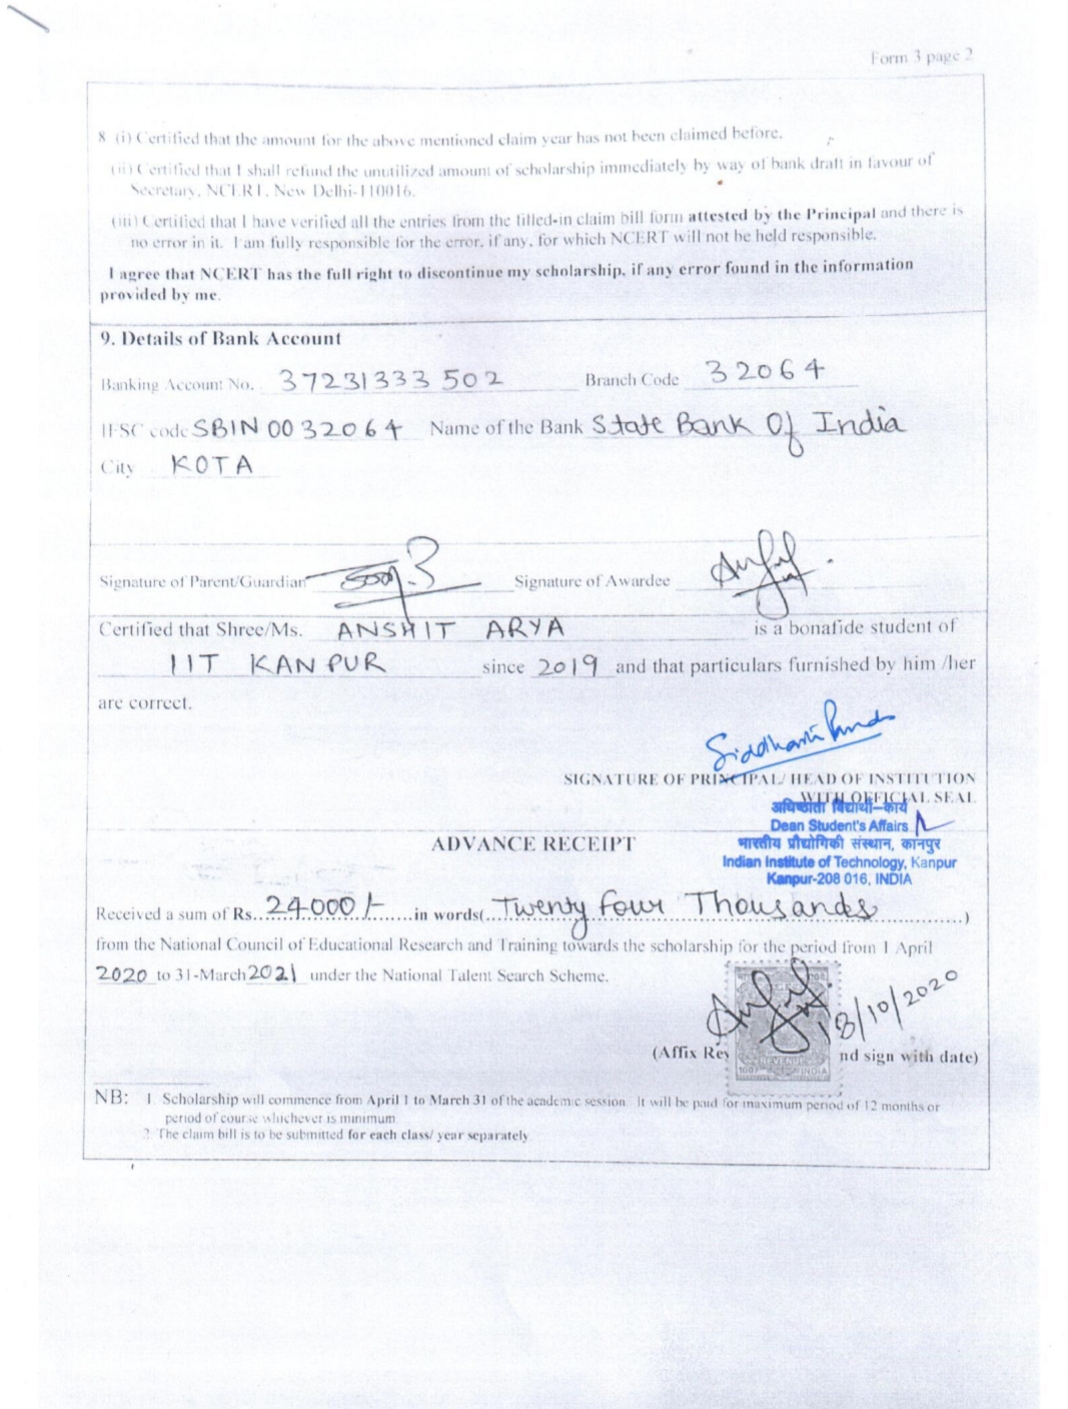 Form 3 page 2
8 (i) Certified that the amount for the above mentioned claim year has not been claimed before.
(ii) Certified that I shall refund the unutilized amount of scholarship immediately by way of bank draft in favour of
Secretary, NCERT, New Delhi-110016.
(iii) Certified that I have verified all the entries from the filled-in claim bill form attested by the Principal and there is
no error in it. I am fully responsible for the error, if any, for which NCERT will not be held responsible.
I agree that NCERT has the full right to discontinue my scholarship, if any error found in the information
provided by me.
9. Details of Bank Account
Banking Account No. 37231333502 Branch Code 32064
IFSC code SBIN0032064 Name of the Bank State Bank Of India
City KOTA
Signature of Parent/Guardian Signature of Awardee
Certified that Shree/Ms. ANSHIT ARYA is a bonafide student of
IIT KANPUR since 2019 and that particulars furnished by him /her
are correct.
Siddharth Panda
SIGNATURE OF PRINCIPAL/ HEAD OF INSTITUTION
WITH OFFICIAL SEAL
अधिष्ठाता विद्यार्थी-कार्य
Dean Student's Affairs
भारतीय प्रौद्योगिकी संस्थान, कानपुर
Indian Institute of Technology, Kanpur
Kanpur-208 016, INDIA
ADVANCE RECEIPT
Received a sum of Rs..24000/-......in words(..Twenty four Thousands..............)
from the National Council of Educational Research and Training towards the scholarship for the period from 1 April
2020 to 31-March 2021 under the National Talent Search Scheme.
13/10/2020
(Affix Rev nd sign with date)
REVENUE
INDIA
NB: 1. Scholarship will commence from April 1 to March 31 of the academic session. It will be paid for maximum period of 12 months or
period of course whichever is minimum.
2. The claim bill is to be submitted for each class/ year separately.